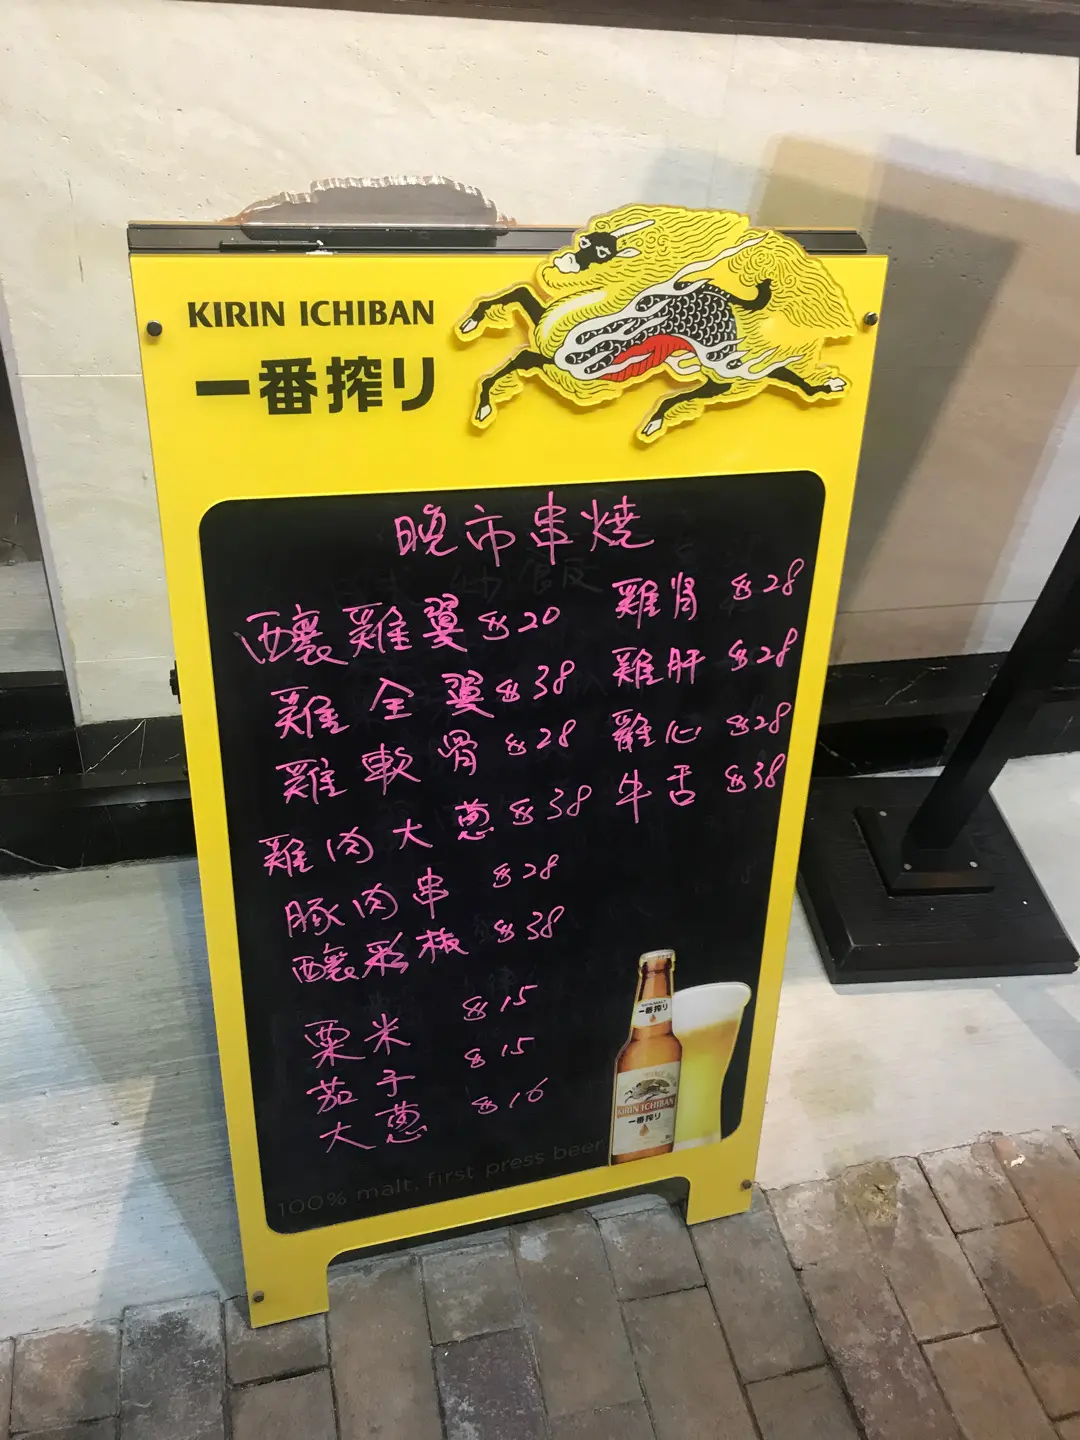 KIRIN ICHIBAN
一番搾り
晚市串燒
釀雞翼 $20
雞全翼 $38
雞軟骨 $28
雞肉大蔥 $38
豚肉串 $28
釀彩椒 $38
粟米 $15
茄子 $15
大蔥 $16
雞腎 $28
雞肝 $28
雞心 $28
牛舌 $38
一番搾り
KIRIN ICHIBAN
一番搾り
100% malt, first press beer